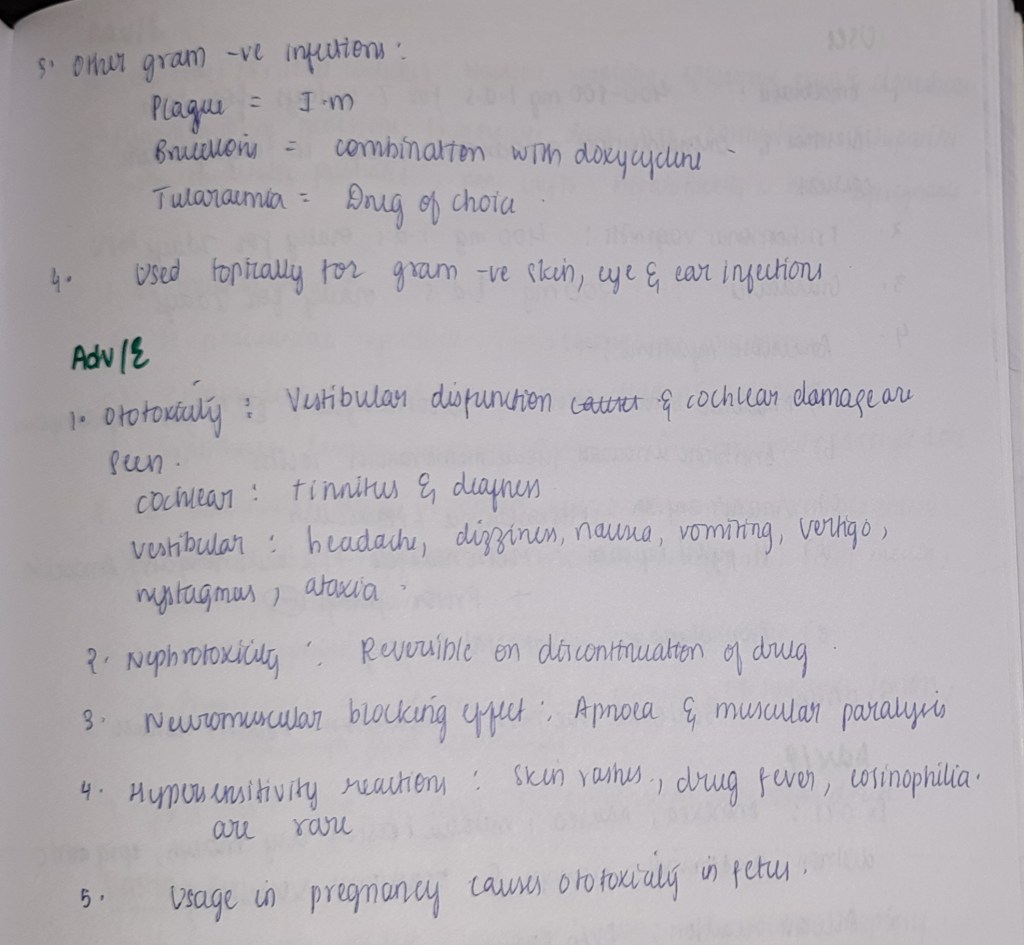 3. Other gram -ve infections :
Plaque = I.m
Brucellosis = combination with doxycycline -
Tularaemia = Drug of choice .
4. Used topically for gram -ve skin, eye & ear infections
Adv/E
1. Ototoxicity : Vestibular disfunction causes & cochlear damage are
seen .
cochlear : tinnitus & deafness
vestibular : headache, dizziness, nausea, vomiting, vertigo,
nystagmus , ataxia .
2. Nephrotoxicity : Reversible on discontinuation of drug .
3. Neuromuscular blocking effect : Apnoea & muscular paralysis
4. Hypersensitivity reactions : skin rashes., drug fever, eosinophilia .
are rare
5. Usage in pregnancy causes ototoxicity in fetus .